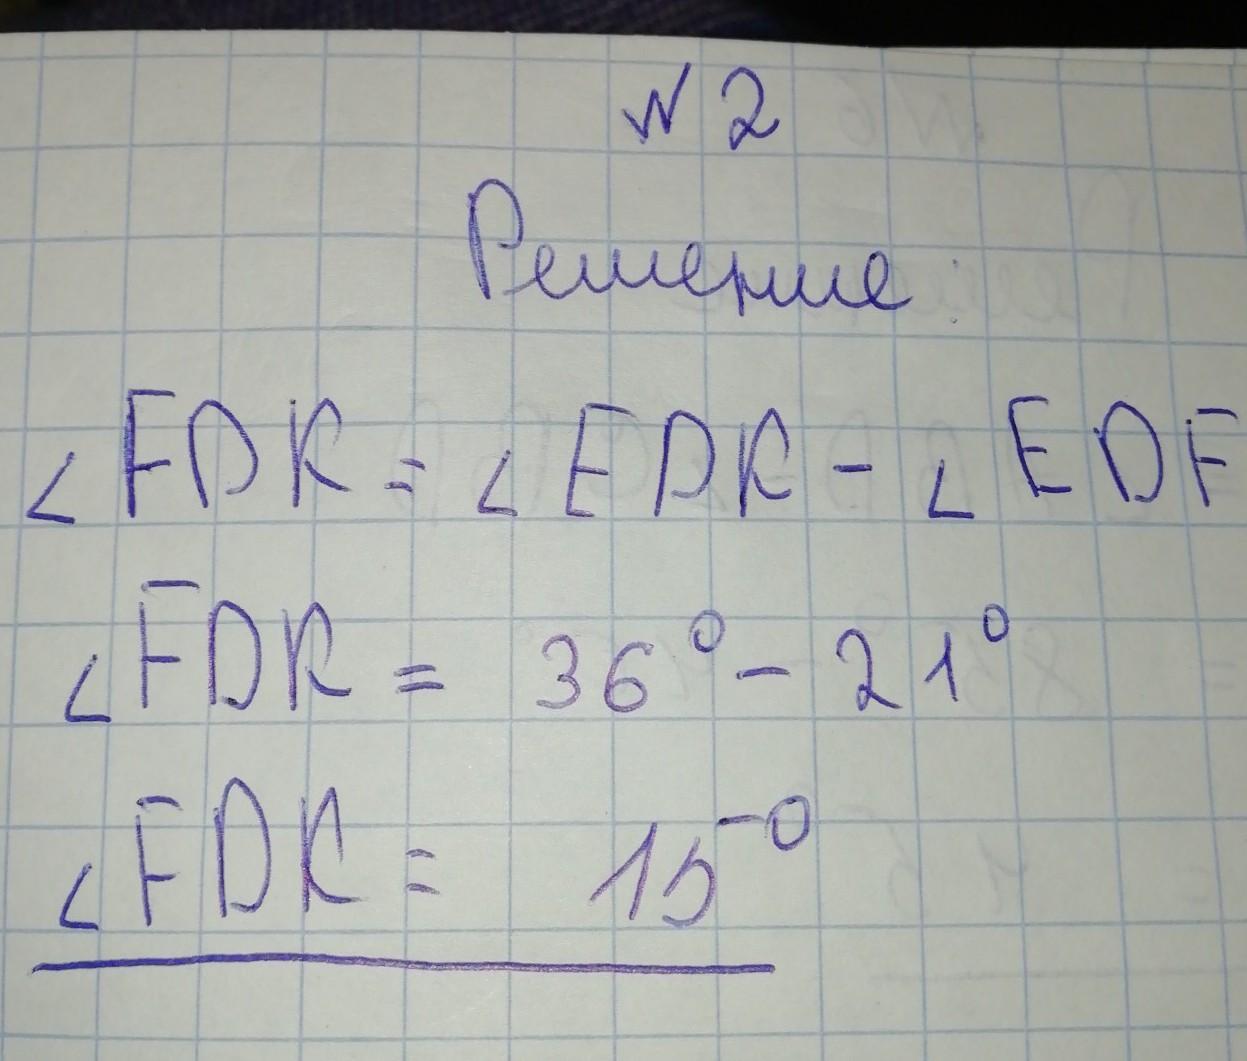 № 2
Решение:
∠FDK = ∠EDK - ∠EDF
∠FDK = 36° - 21°
∠FDK = 15°